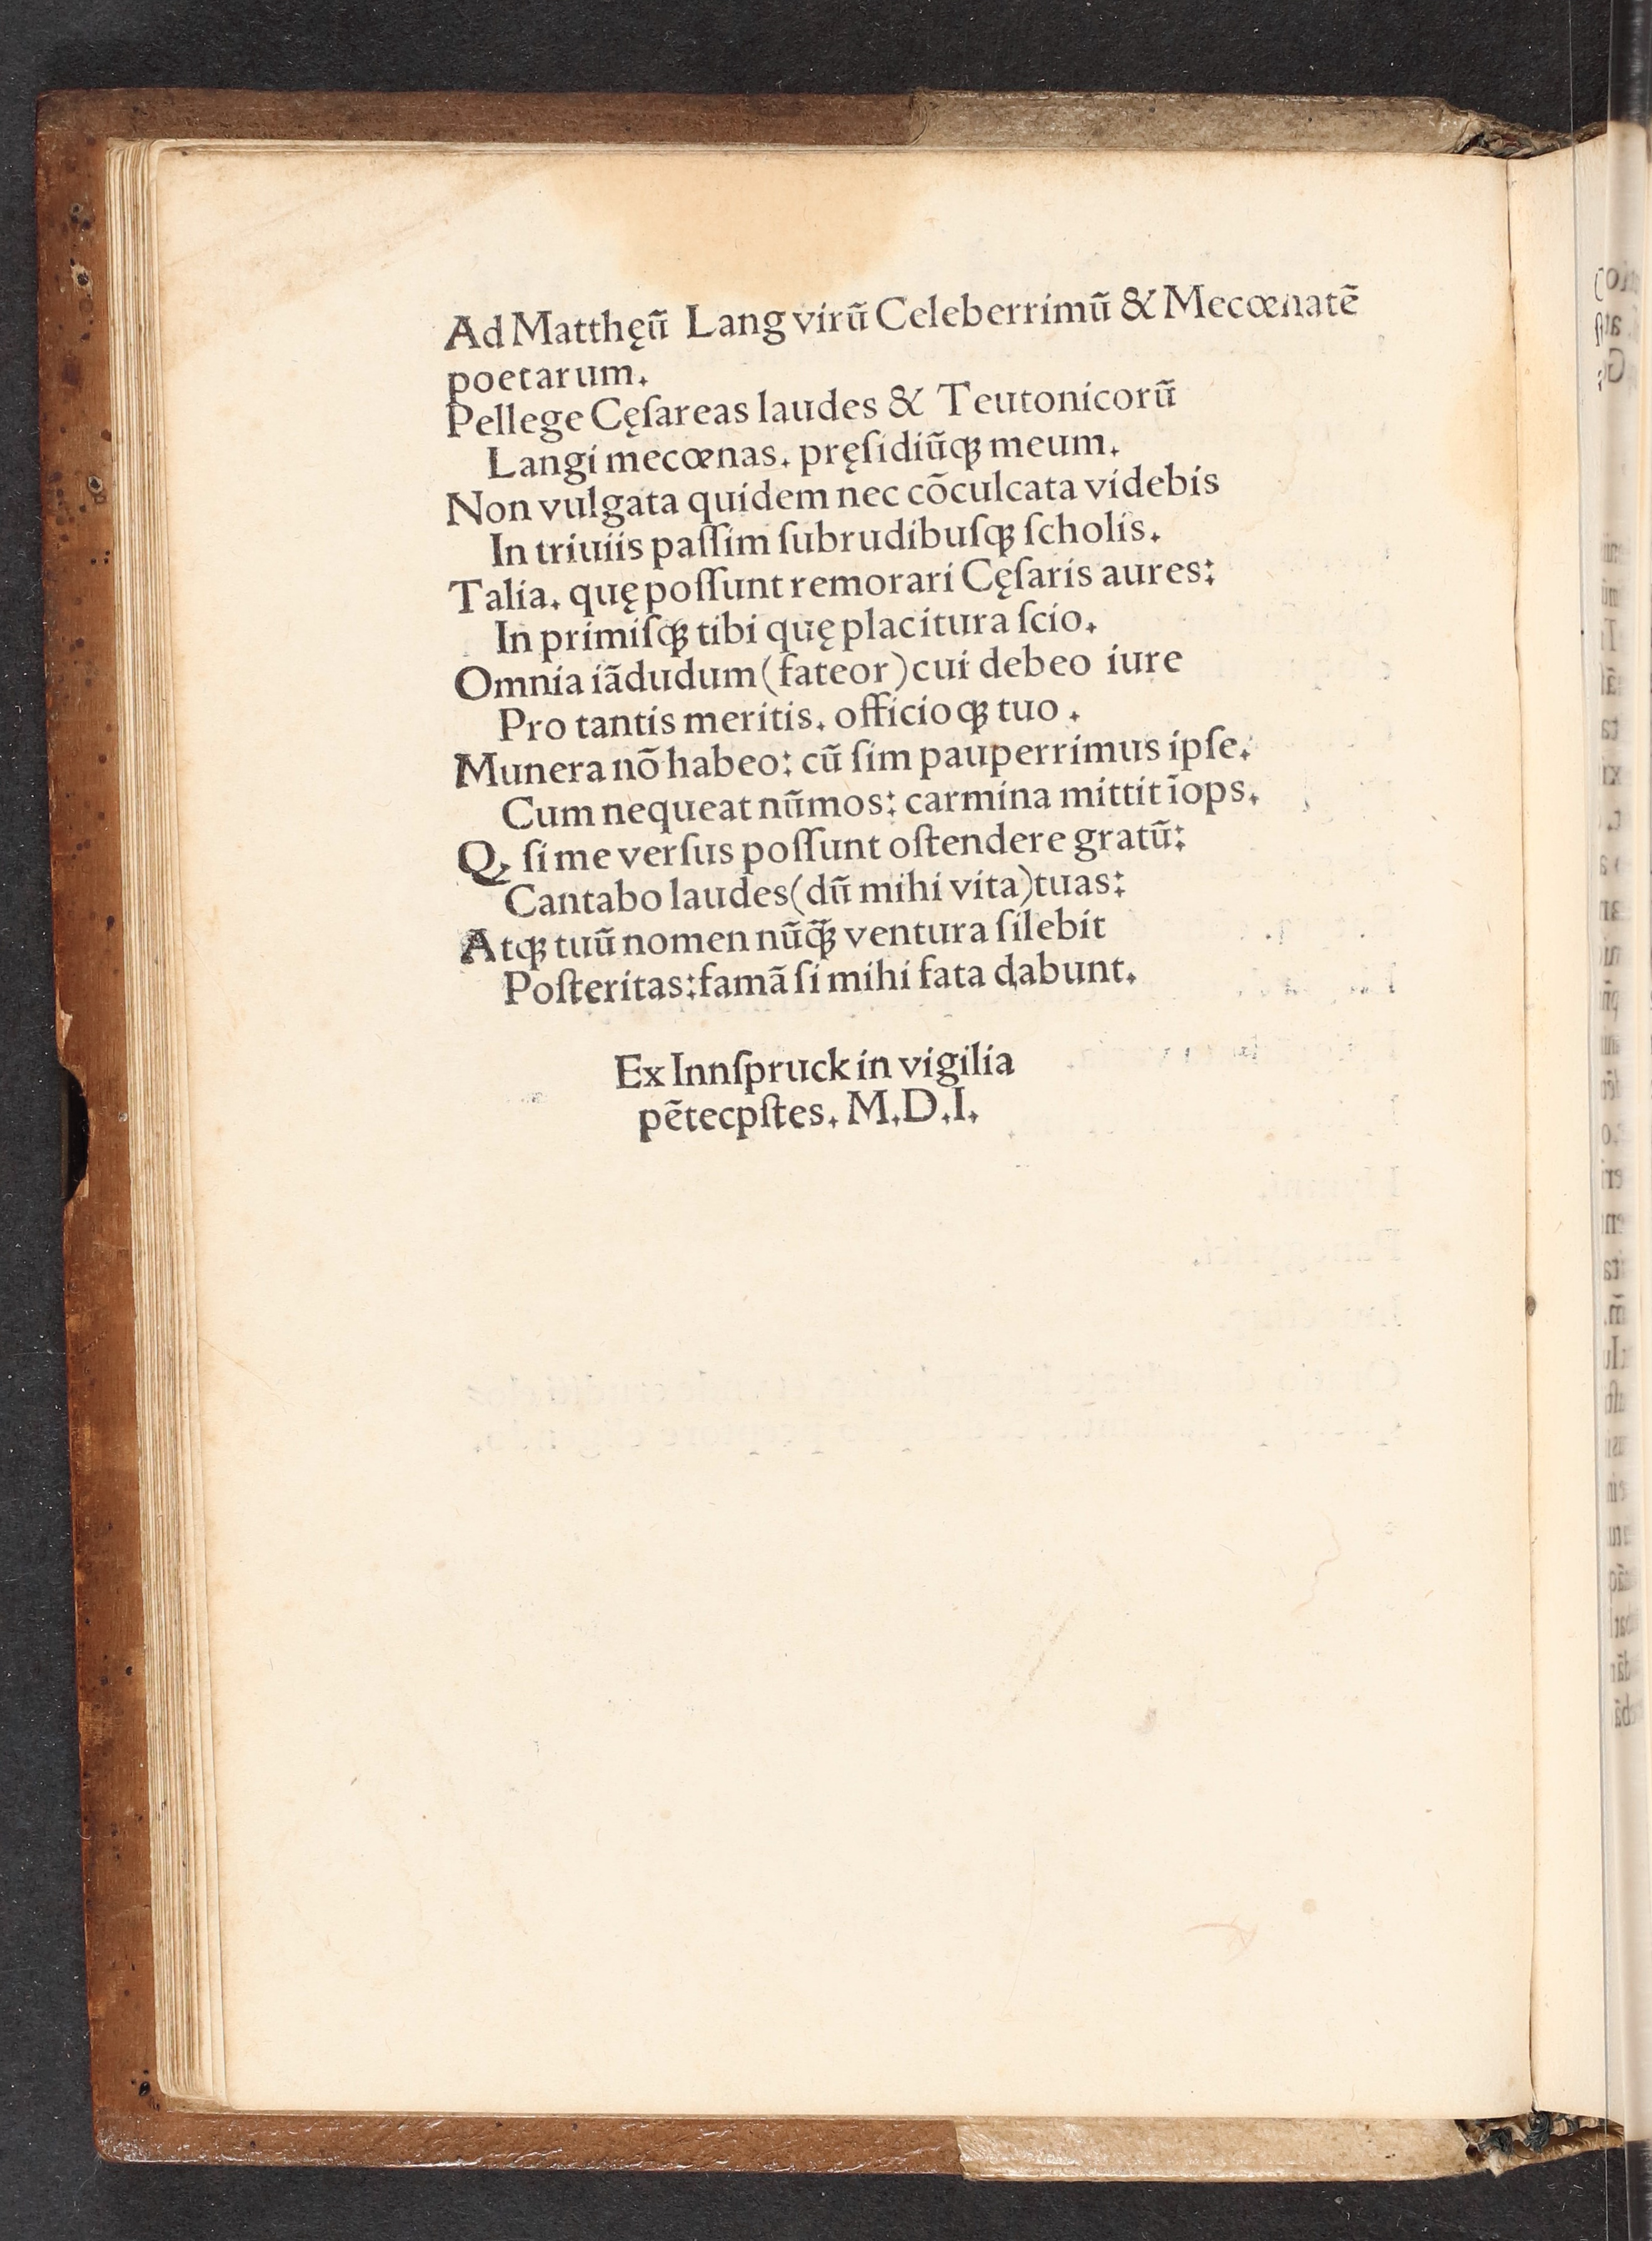 Ad Matthęũ Lang virũ Celeberrimũ & Mecœnatẽ
poetarum.
Pellege Cęſareas laudes & Teutonicorũ
Langi mecœnas. pręſidiũqꝫ meum.
Non vulgata quidem nec cõculcata videbis
In triuiis paſſim ſubrudibuſqꝫ ſcholis.
Talia. quę poſſunt remorari Cęſaris aures:
In primiſqꝫ tibi quę placitura ſcio.
Omnia iãdudum (fateor) cui debeo iure
Pro tantis meritis. officioqꝫ tuo.
Munera nõ habeo: cũ ſim pauperrimus ipſe.
Cum nequeat nũmos: carmina mittit ĩops.
Q, ſi me verſus poſſunt oſtendere gratũ:
Cantabo laudes (dũ mihi vita) tuas:
Atqꝫ tuũ nomen nũq̃ꝫ ventura ſilebit
Poſteritas: famã ſi mihi fata dabunt.
Ex Innſpruck in vigilia
pẽtecpſtes. M.D.I.